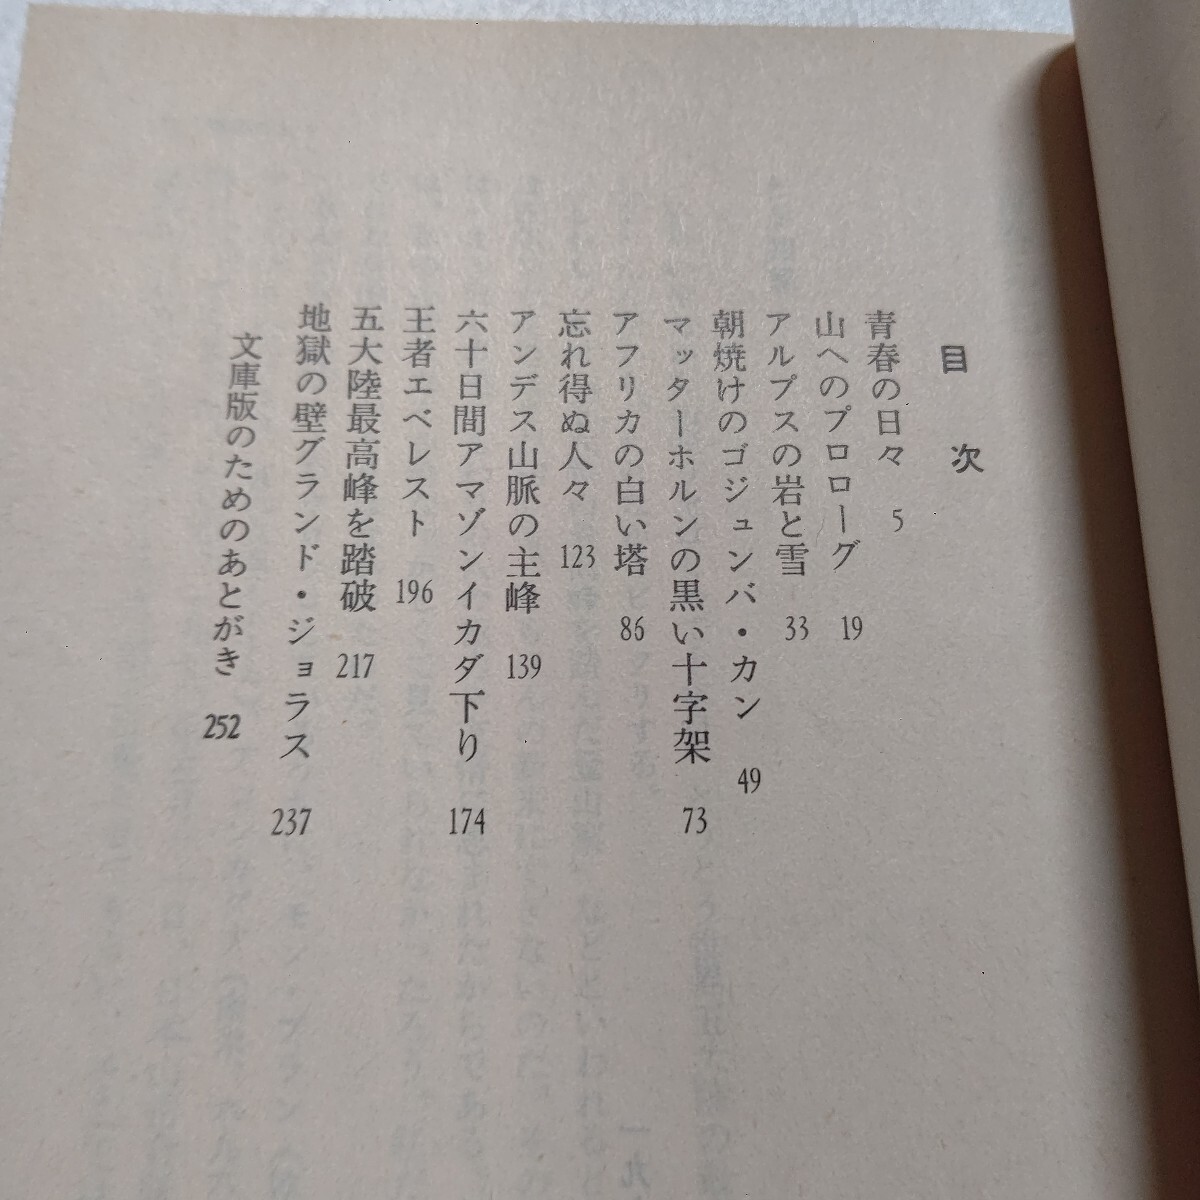 目次
青春の日々 5
山へのプロローグ 19
アルプスの岩と雪 33
朝焼けのゴジュンバ・カン 49
マッターホルンの黒い十字架 73
アフリカの白い塔 86
忘れ得ぬ人々 123
アンデス山脈の主峰 139
六十日間アマゾンイカダ下り 174
王者エベレスト 196
五大陸最高峰を踏破 217
地獄の壁グランド・ジョラス 237
文庫版のためのあとがき 252